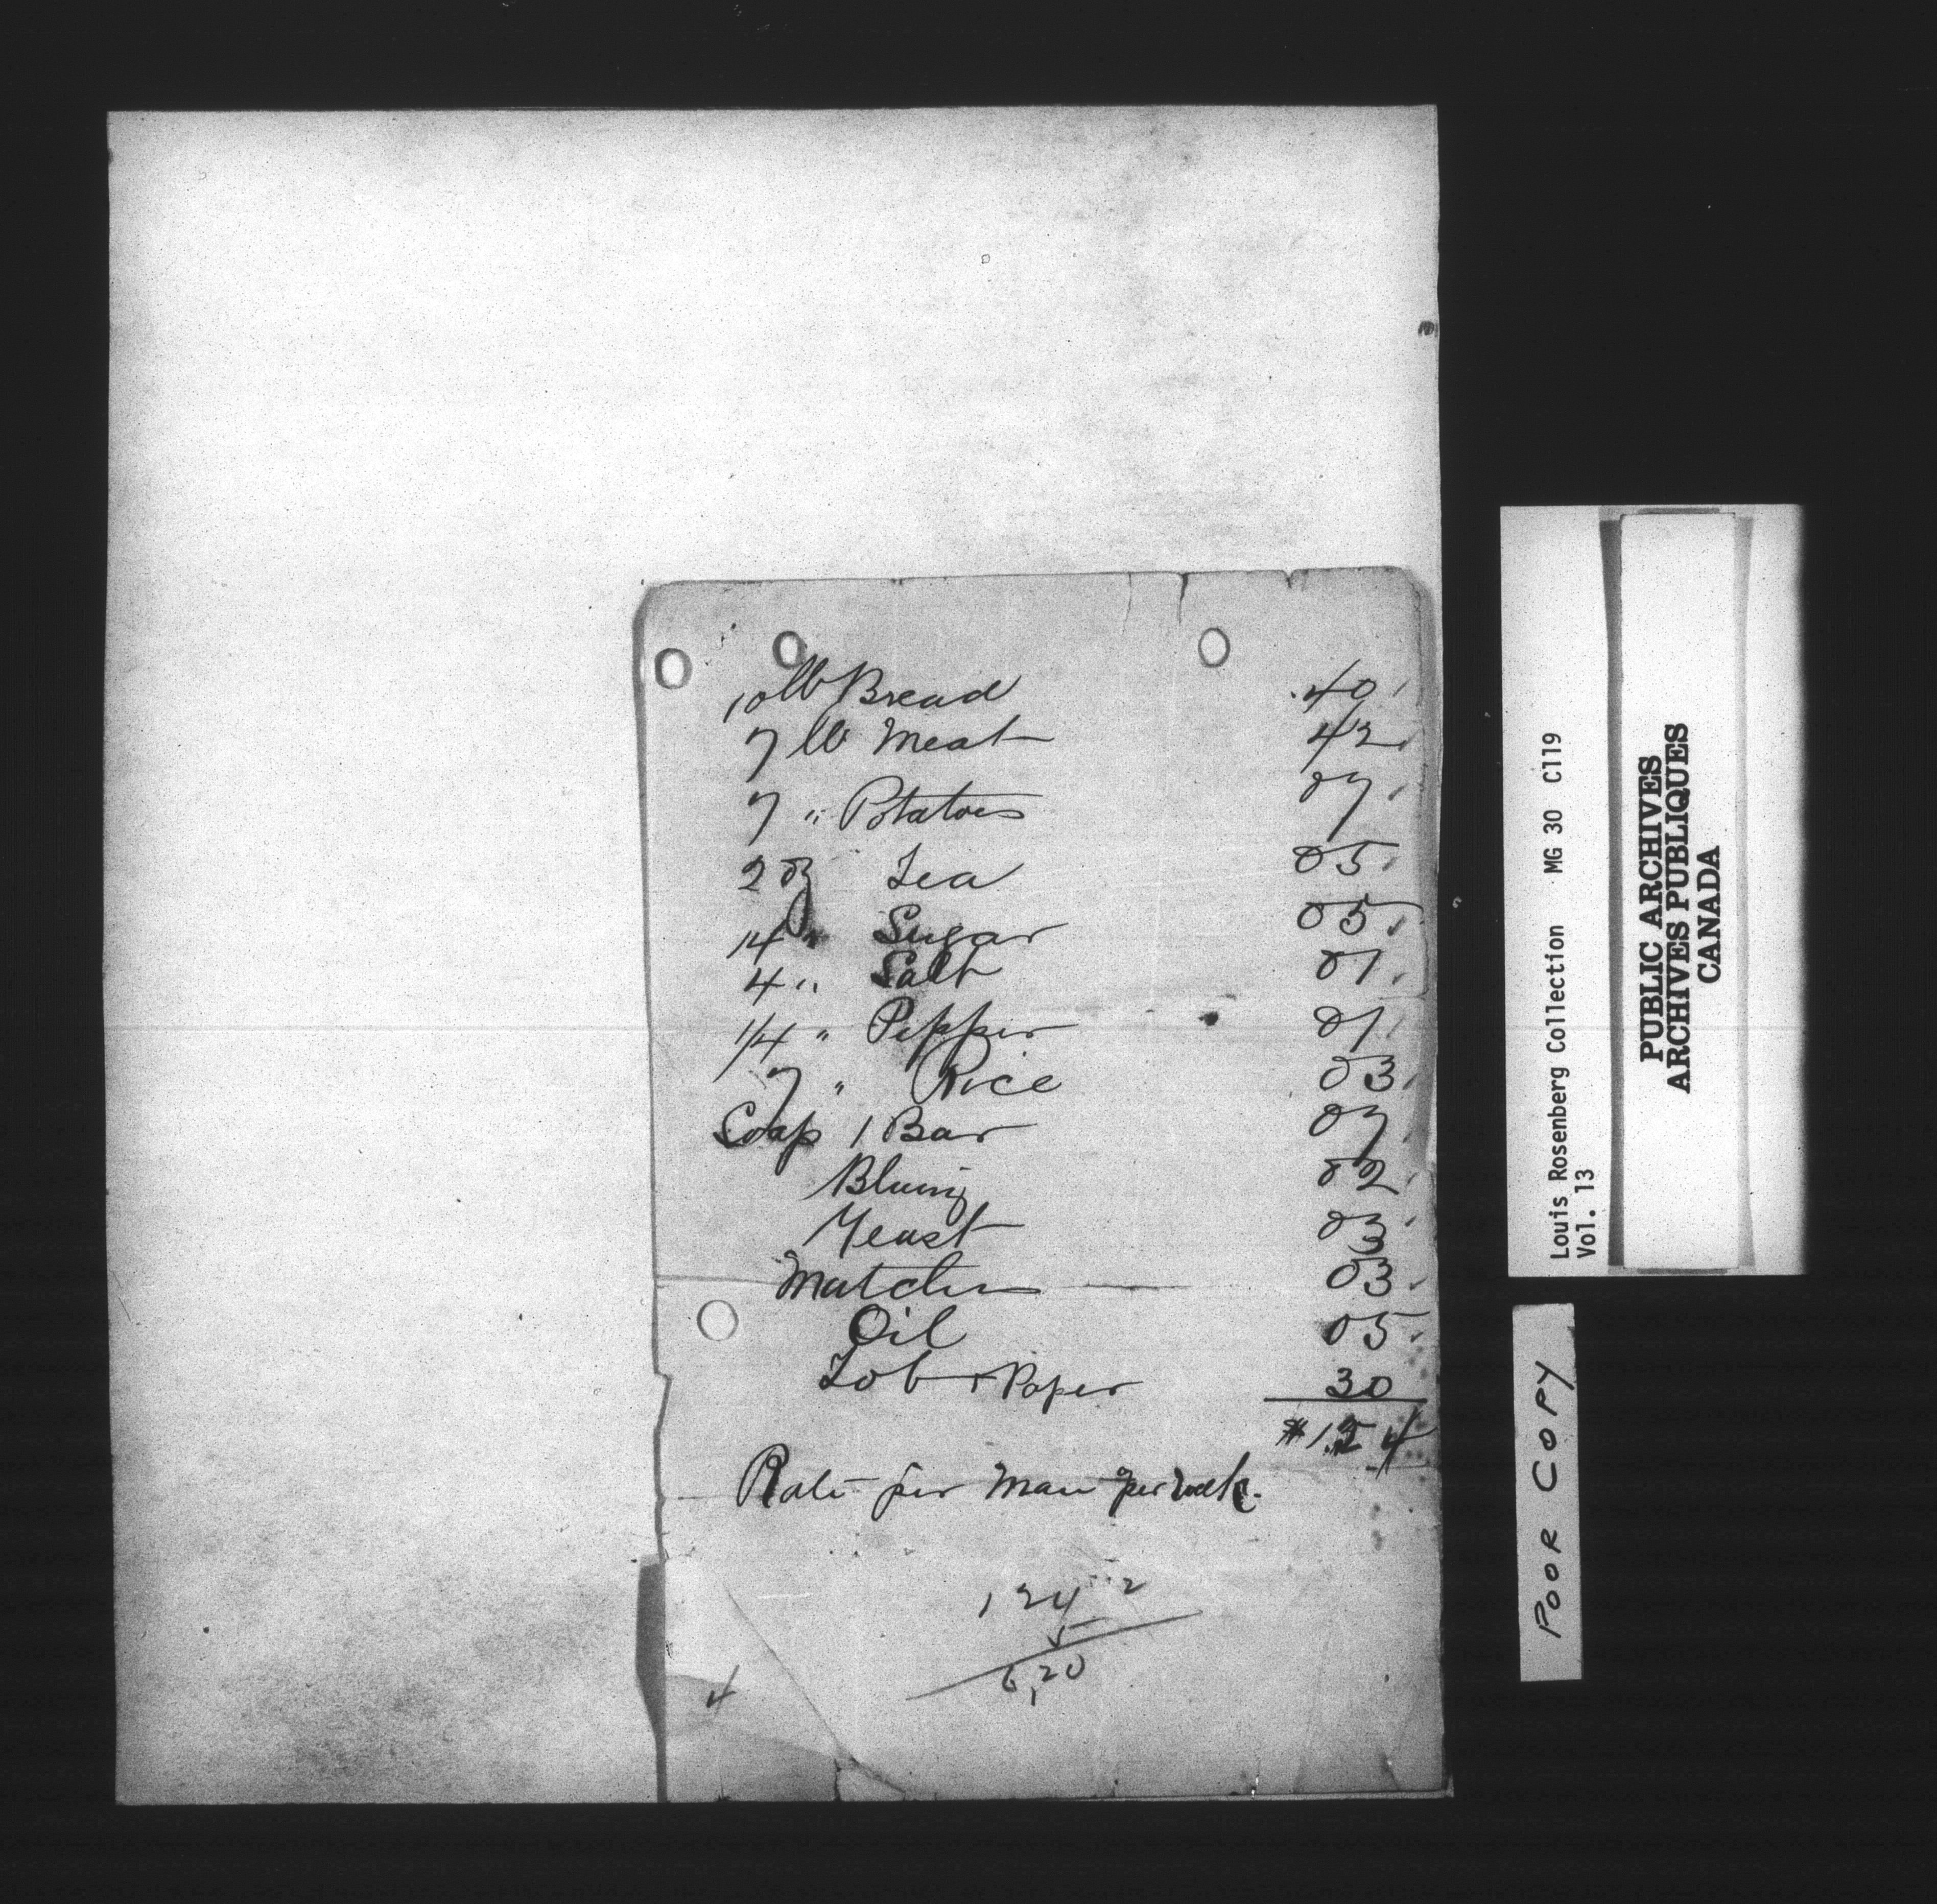 10 lb Bread .40
7 lb Meat 42
7 " Potatoes 07
2 oz Tea 05
14 " Sugar 05
4 " Salt 01
1/4 " Pepper 01
7 " Rice 03
Soap 1 Bar 07
Bluing 02
Yeast 03
Matches 03
Oil 05
Tob + Paper 30
$1.54
Rate per Man per week.
124
5
6,20
4
Louis Rosenberg Collection MG 30 C119
Vol. 13
PUBLIC ARCHIVES
ARCHIVES PUBLIQUES
CANADA
POOR COPY